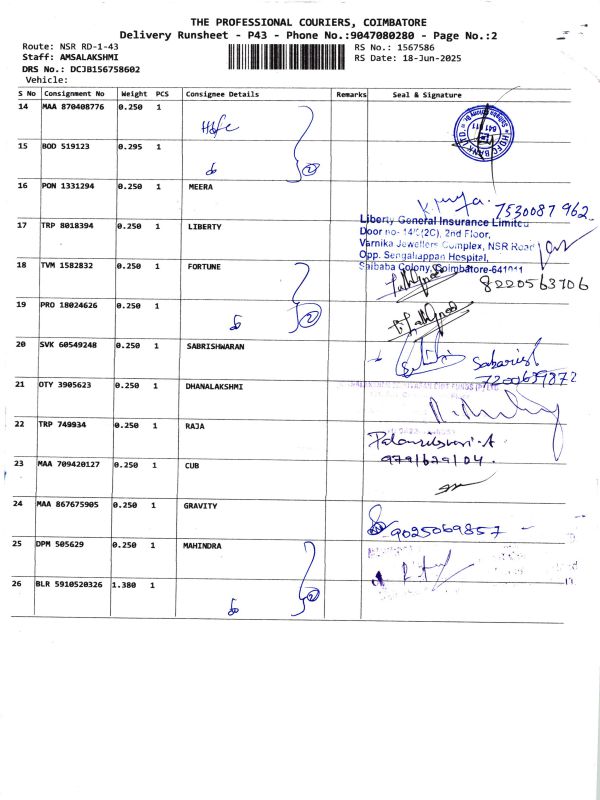 THE PROFESSIONAL COURIERS, COIMBATORE
Delivery Runsheet - P43 - Phone No.:9047080280 - Page No.:2
Route: NSR RD-1-43
RS No.: 1567586
Staff: AMSALAKSHMI
RS Date: 18-Jun-2025
DRS No.: DCJB156758602
Vehicle:
S No Consignment No Weight PCS Consignee Details Remarks Seal & Signature
14 MAA 870408776 0.250 1 Hdfc
HDFC BANK LTD
641 011
15 BOD 519123 0.295 1 do 2
16 PON 1331294 0.250 1 MEERA
7530087 962
17 TRP 8018394 0.250 1 LIBERTY
Liberty General Insurance Limited
2nd Floor,
Varnika Jewellers Complex, NSR Road
Opp. Sengaliappan Hospital,
Saibaba Colony, Coimbatore-641011
18 TVM 1582832 0.250 1 FORTUNE
8220563706
19 PRO 18024626 0.250 1 do 2
20 SVK 60549248 0.250 1 SABRISHWARAN
21 OTY 3905623 0.250 1 DHANALAKSHMI
22 TRP 749934 0.250 1 RAJA
9791629104.
23 MAA 709420127 0.250 1 CUB
24 MAA 867675905 0.250 1 GRAVITY
9025069857
25 DPM 505629 0.250 1 MAHINDRA
26 BLR 5910520326 1.380 1 do 2